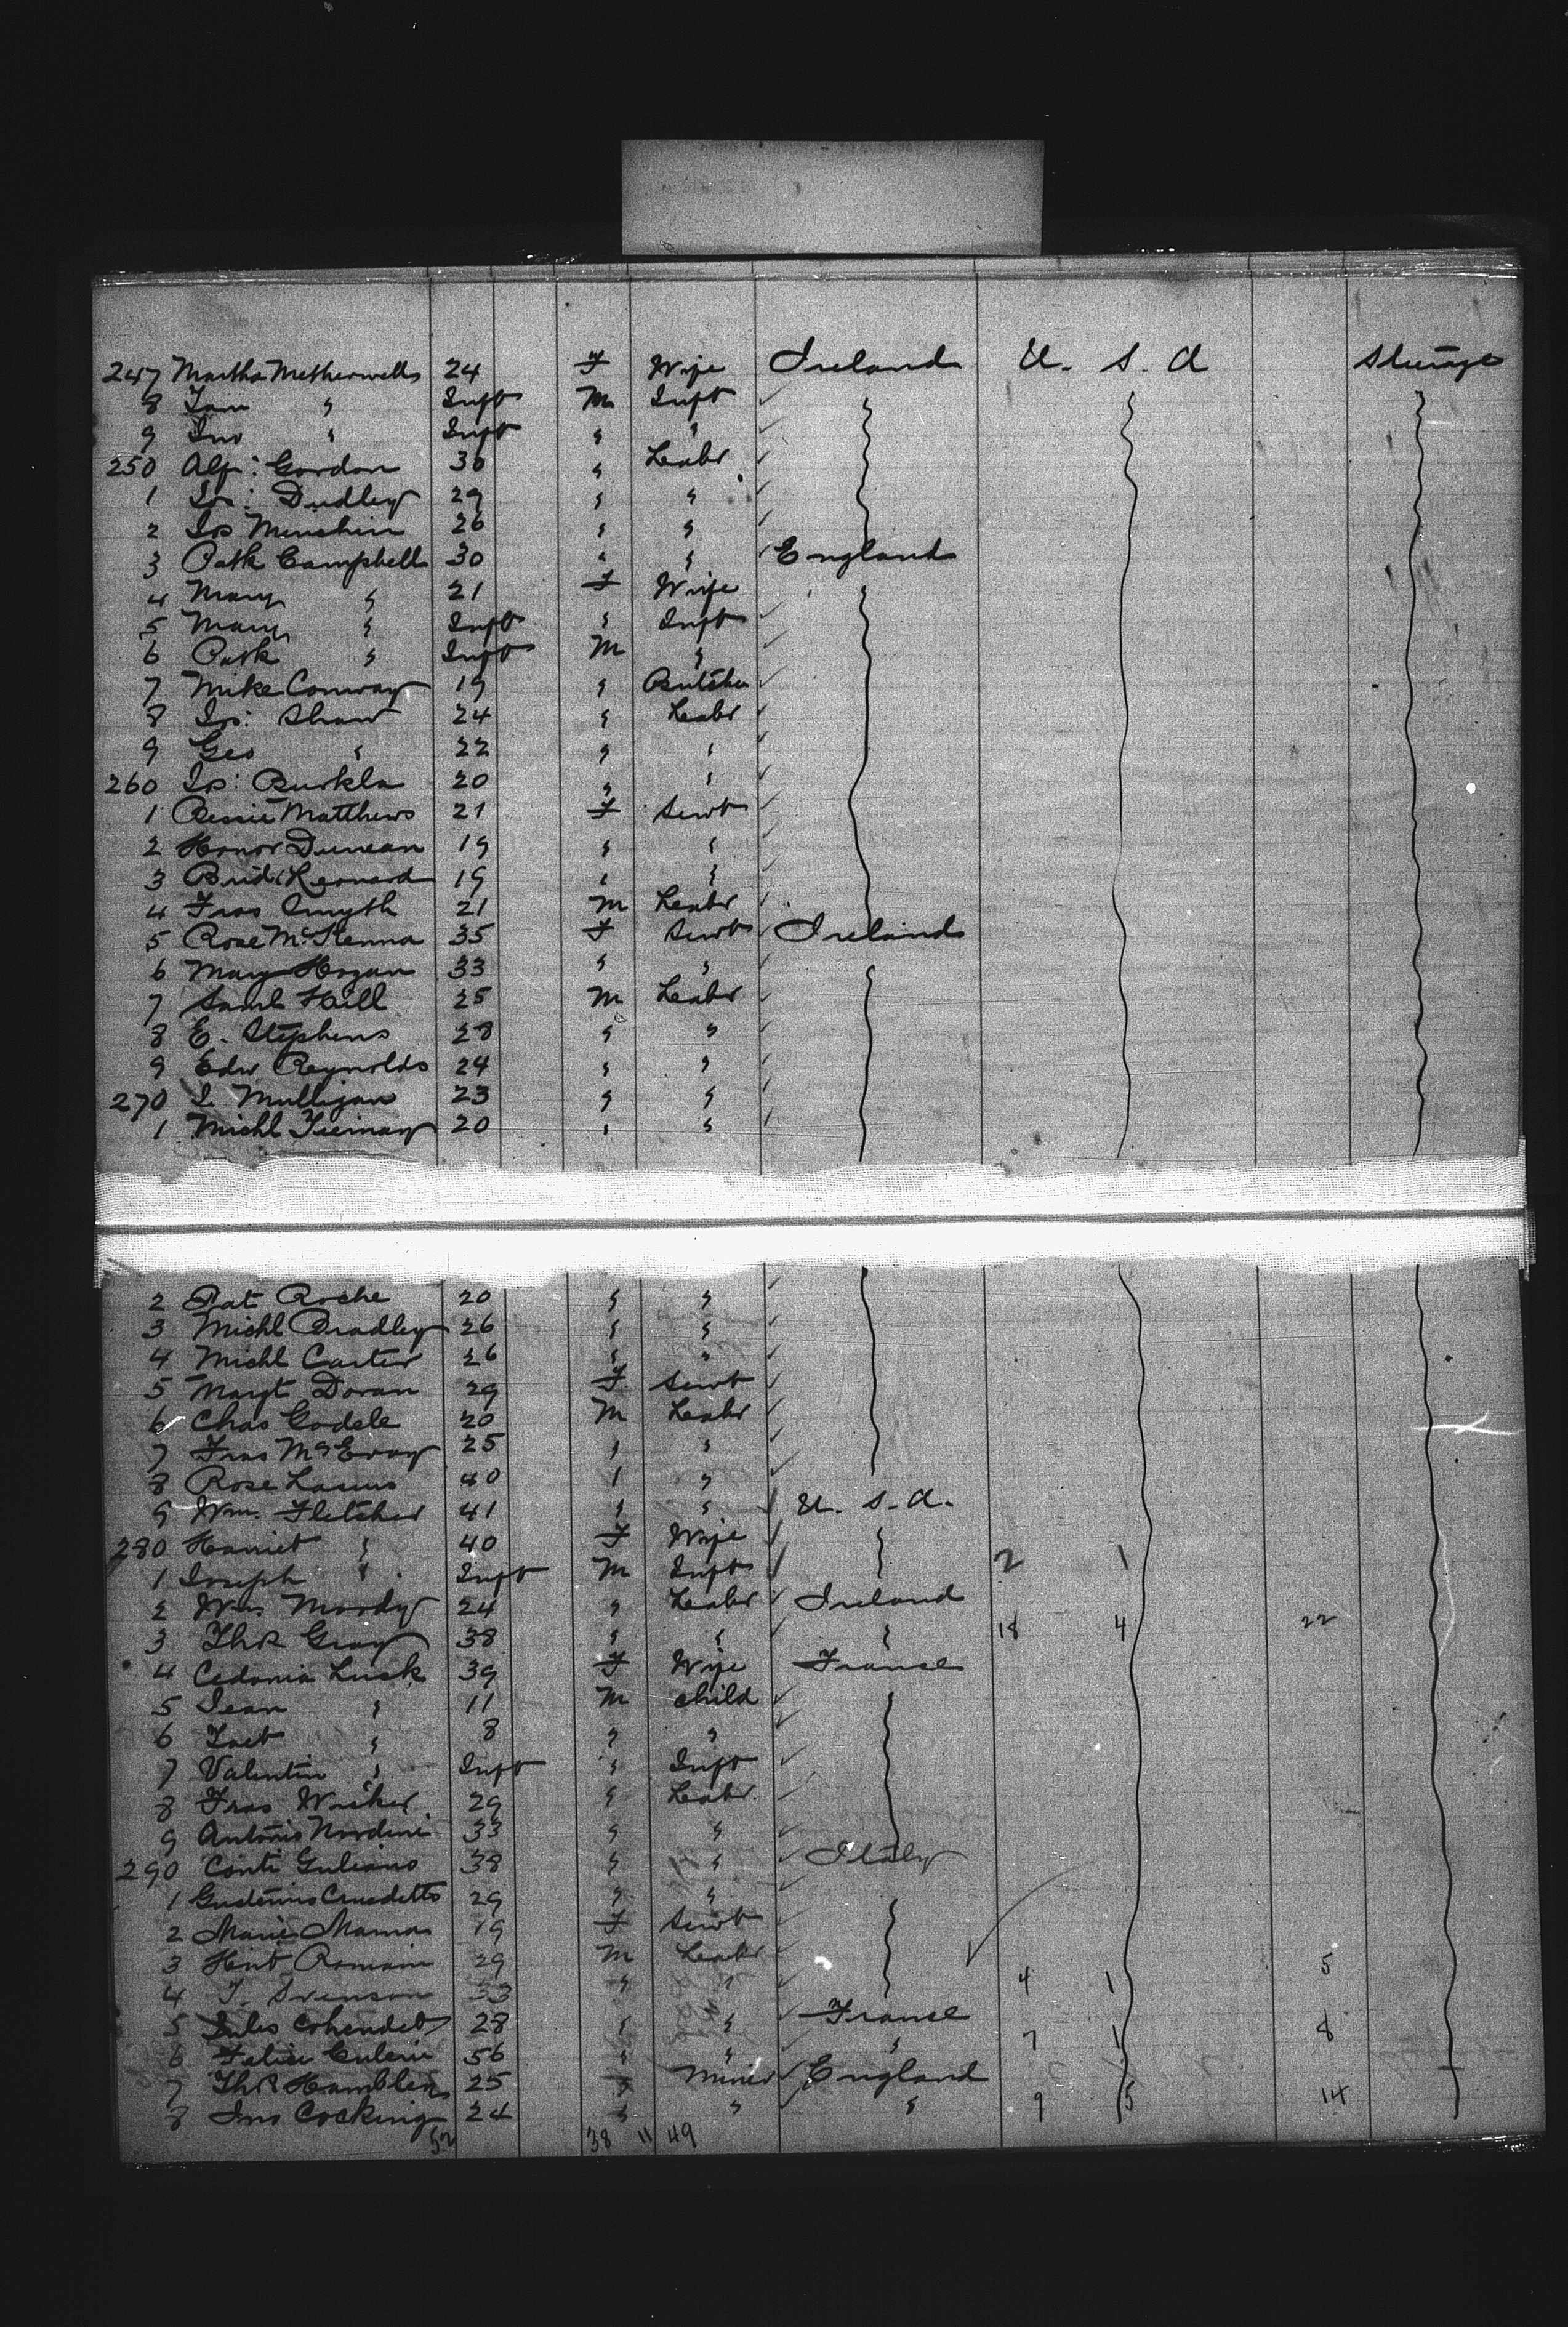 247 Martha Metherwells 24 F Wife Ireland U. S. A Steerage
8 Jan " Inft M Inft
9 Jno " Inft " "
250 Alf: Gordon 30 " Labr
1 Jos: Dudley 29 " "
2 Jos Minchin 26 " "
3 Patk Campbell 30 " " England
4 Mary " 21 F Wife
5 Mary " Inft " Inft
6 Patk " Inft M "
7 Mike Conway 19 " Butcher
8 Jos: Shaw 24 " Labr
9 Geo " 22 " "
260 Jos: Burkla 20 " "
1 Bessie Matthews 21 F Servt
2 Honor Duncan 19 " "
3 Brid: Leonard 19 " "
4 Fras Smyth 21 M Labr
5 Rose McKenna 35 F Servt Ireland
6 Mary Hogan 33 " "
7 Saml Hill 25 M Labr
8 E. Stephens 28 " "
9 Edw Reynolds 24 " "
270 J. Mulligan 23 " "
1 Michl Tiernay 20 " "
2 Pat Roche 20 " "
3 Michl Bradley 26 " "
4 Michl Carter 26 " "
5 Margt Doran 29 F Servt
6 Chas Godele 20 M Labr
7 Fras McEvoy 25 " "
8 Rose 40 " "
9 Wm. Fletcher 41 " " U. S. A.
280 Harriet " 40 F Wife 2 1
1 Joseph " Inft M Inft
2 Wm Moody 24 " Labr Ireland
3 Thos Gray 38 " " " 18 4 22
4 Cedonia Lusk 39 F Wife France
5 Jean " 11 M Child
6 " 8 " "
7 Valentin " Inft " Inft
8 Fras Wicker 29 " Labr
9 Antonio Nordini 33 " "
290 Conti Guliano 38 " " Italy
1 29 " "
2 Marie Mamas 19 F Servt
3 Romain 29 M Labr
4 J. Svenson 33 " " 4 1 5
5 Jules Cohendet 28 " " France
6 56 " " " 7 1 8
7 Thos Hamblen 25 " Miner England
8 Jno Cocking 24 " " " 9 5 14
52 38 11 49